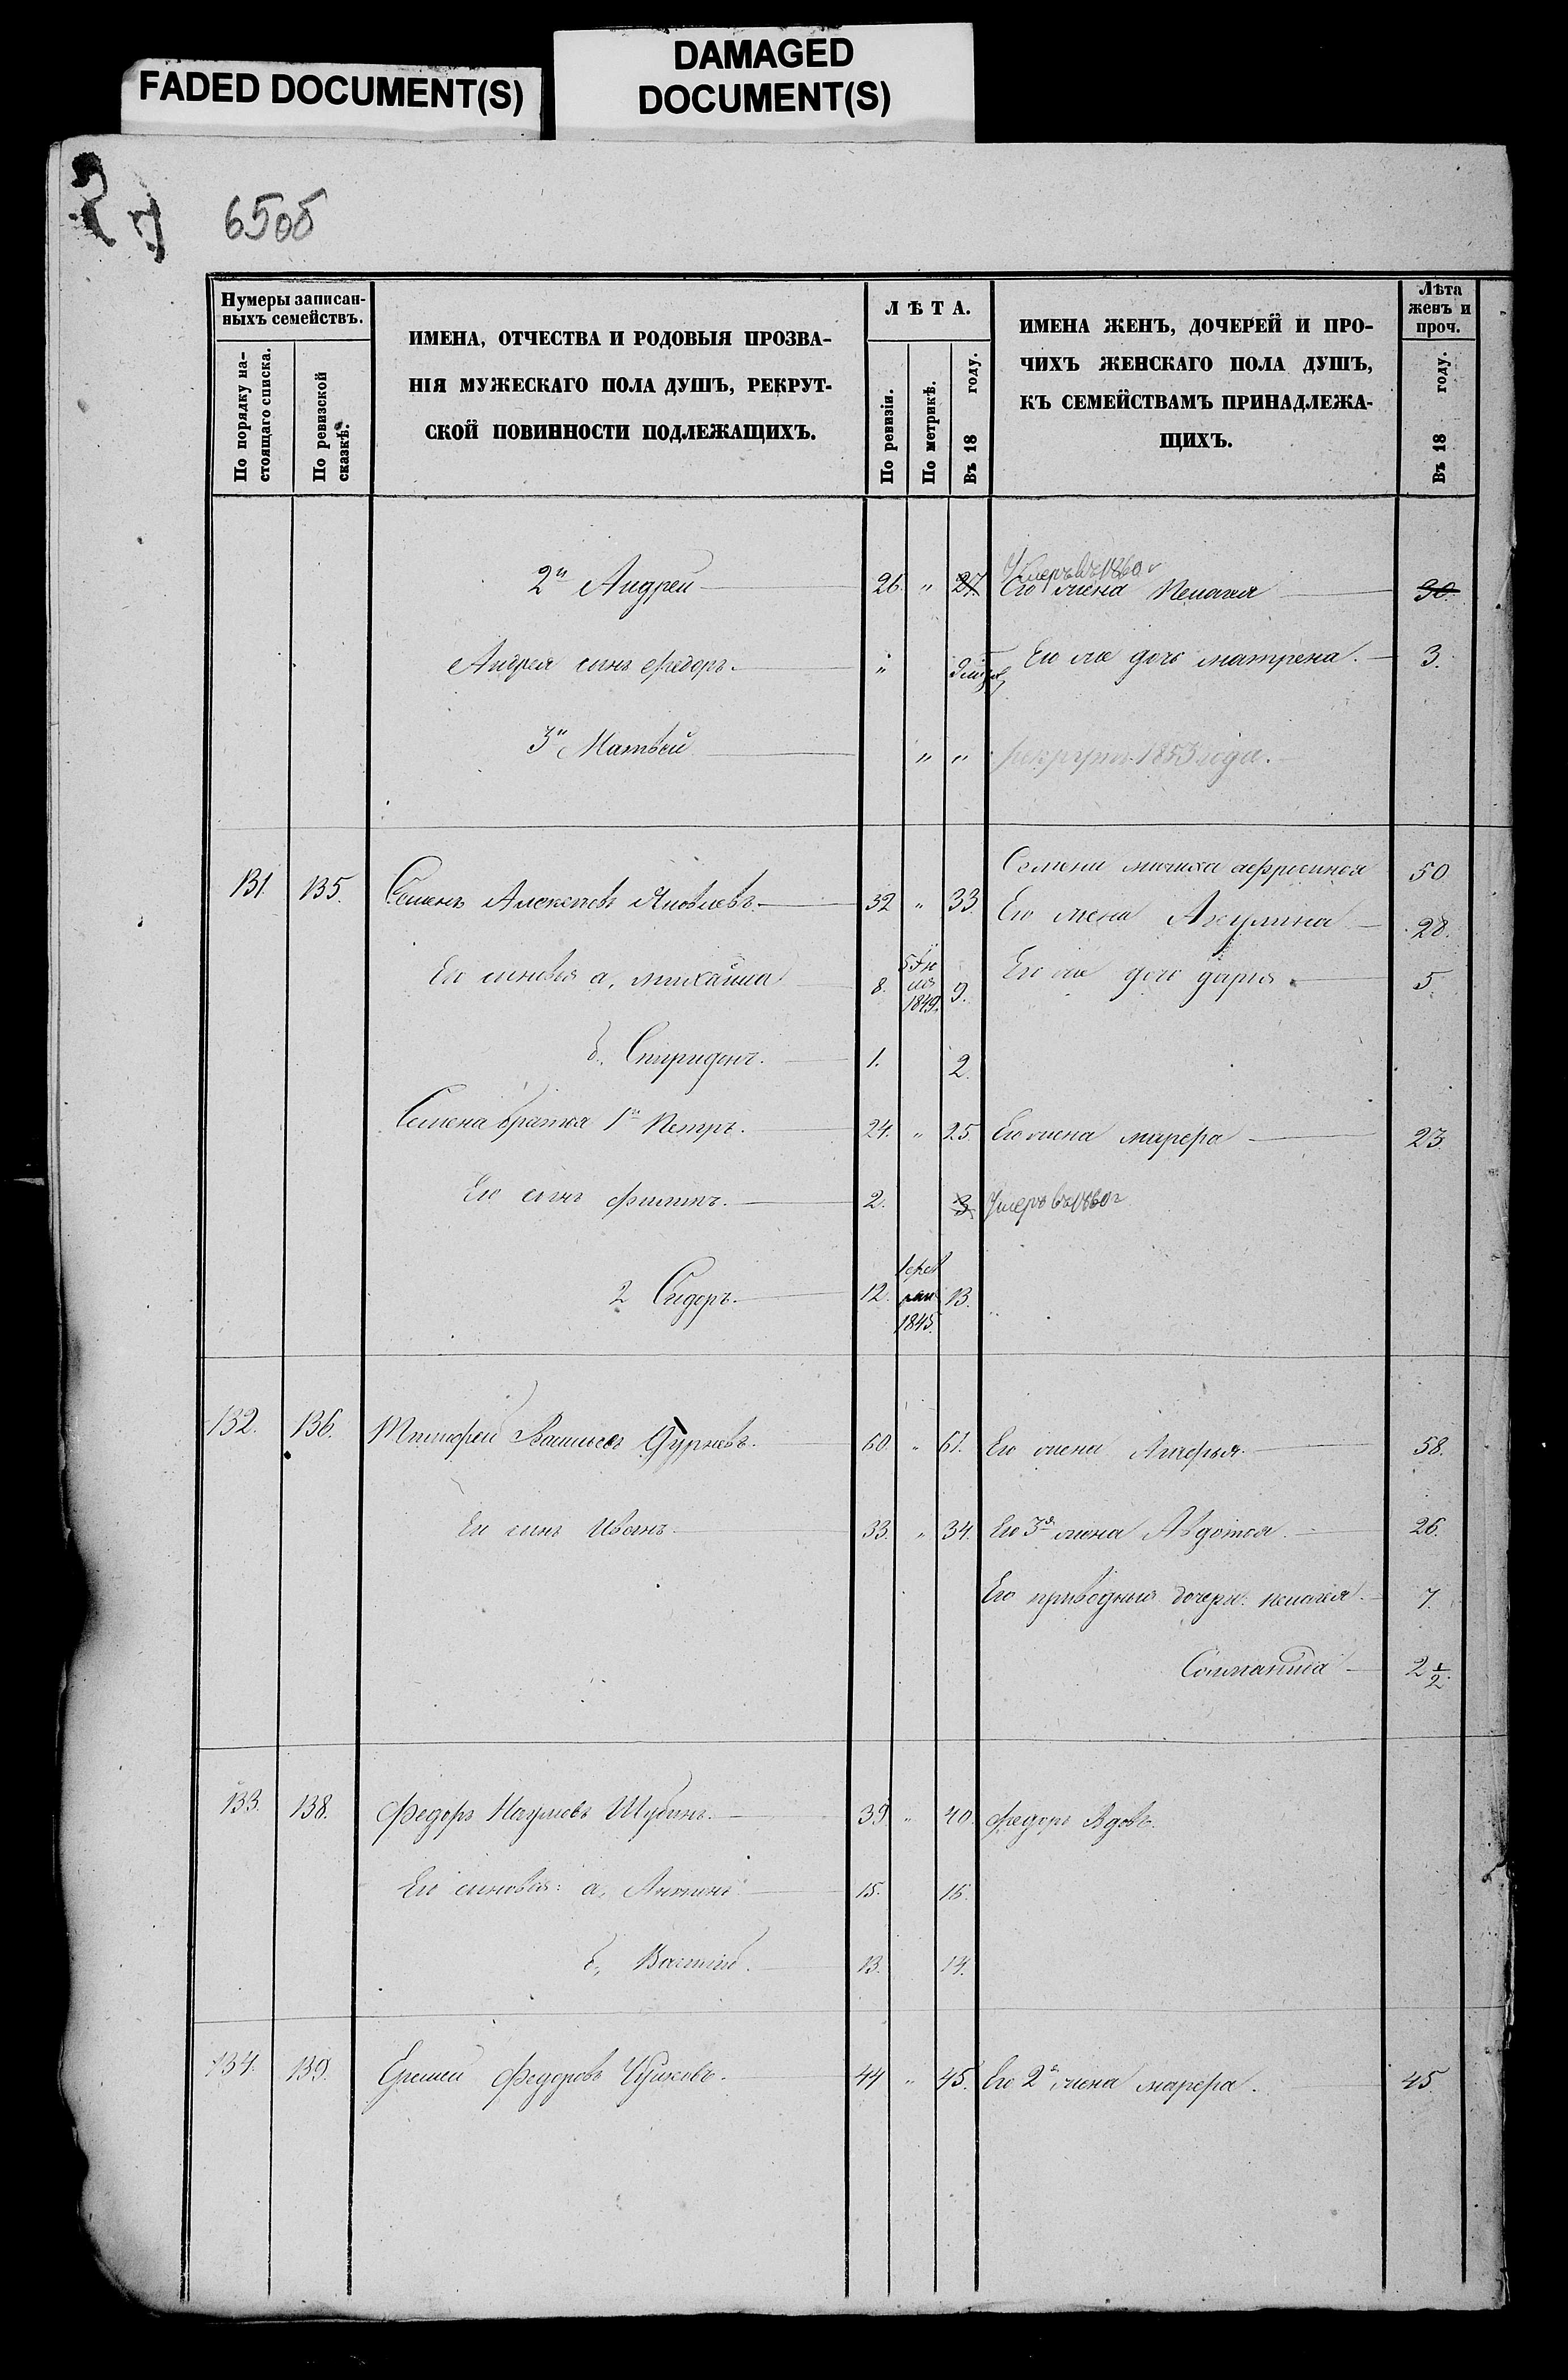 FADED DOCUMENT(S)
DAMAGED
DOCUMENT(S)
650б
Нумеры записан-
ныхъ семействъ.
По порядку на-
стоящаго списка.
По ревизской
сказкѣ.
ИМЕНА, ОТЧЕСТВА И РОДОВЫЯ ПРОЗВА-
НІЯ МУЖЕСКАГО ПОЛА ДУШЪ, РЕКРУТ-
СКОЙ ПОВИННОСТИ ПОДЛЕЖАЩИХЪ.
ЛѢТА.
По ревизіи.
По метрикѣ.
Въ 18 году.
ИМЕНА ЖЕНЪ, ДОЧЕРЕЙ И ПРО-
ЧИХЪ ЖЕНСКАГО ПОЛА ДУШЪ,
КЪ СЕМЕЙСТВАМЪ ПРИНАДЛЕЖА-
ЩИХЪ.
Лѣта
женъ и
проч.
Въ 18 году.
Умеръ въ 1860 г
2й Андрей 26. „ 27 Его жена Пелагея 30.
Андрея сынъ Федоръ. „ Его же дочь матрена. 3.
3й Матвей „ „ рекрутъ 1853 года.
Семена мачиха аефросинья 50
131 135. Семенъ Алексеевъ Яковлевъ. 32 „ 33. Его жена Акулина 28.
Его сыновья а, михайла 8. 5 Ію
ля
1849. 9. Его же дочь дарья. 5.
б, Спиридонъ. 1. 2.
Семена братья 1й Петръ. 24. „ 25. Его жена марфа 23.
Его сынъ филипъ. 2. 3 Умеръ въ 1860 г
2 Сидоръ. 12. 1 фев
рал
1845. 13.
132. 136. Тимофей Васильевъ 60. „ 61. Его жена Агафья. 58.
Его сынъ Иванъ. 33. „ 34. Его 3я жена Авдотья. 26.
Его приводныя дочери: пелагея. 7.
Соломанида 2 1/2.
133. 138. Федоръ Наумовъ Шубинъ. 39. „ 40. Федоръ Вдовъ.
Его сыновья: а, 15. 16.
б, Василій. 13. 14.
134. 139. Еремей Федоровъ 44 „ 45. Его 2я жена марфа. 45.